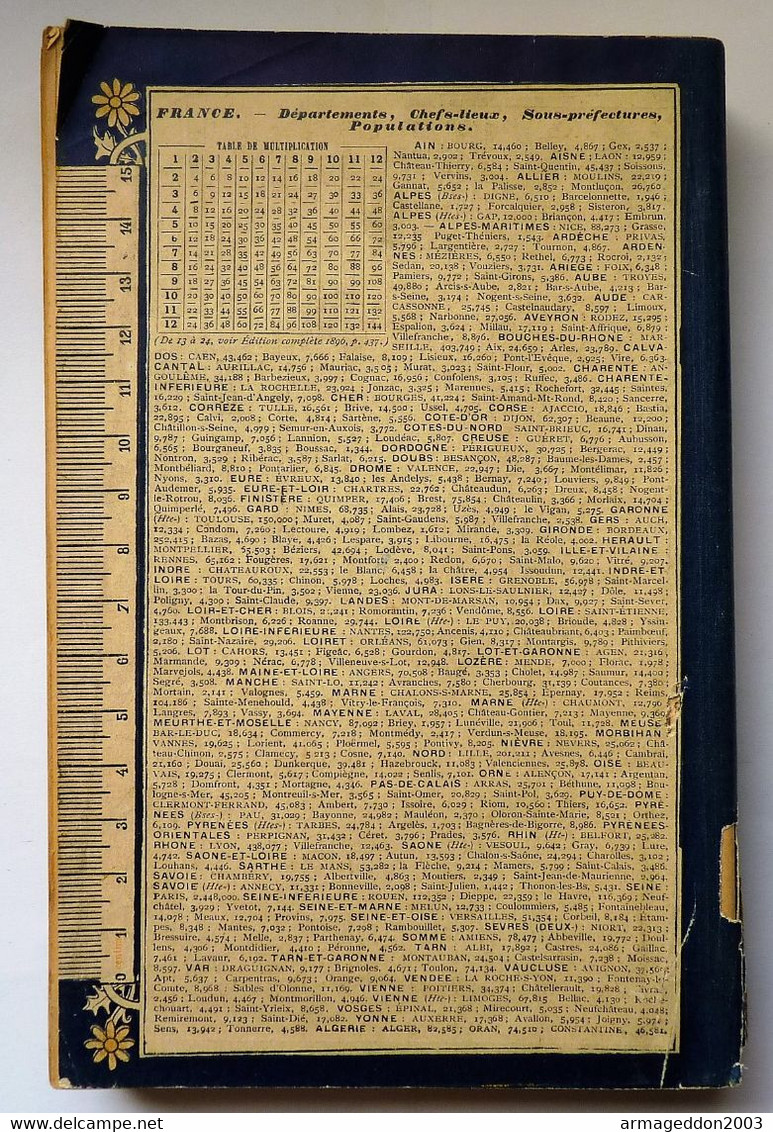 FRANCE. — Départements, Chefs-lieux, Sous-préfectures,
Populations.
TABLE DE MULTIPLICATION
1 2 3 4 5 6 7 8 9 10 11 12
2 4 6 8 10 12 14 16 18 20 22 24
3 6 9 12 15 18 21 24 27 30 33 36
4 8 12 16 20 24 28 32 36 40 44 48
5 10 15 20 25 30 35 40 45 50 55 60
6 12 18 24 30 36 42 48 54 60 66 72
7 14 21 28 35 42 49 56 63 70 77 84
8 16 24 32 40 48 56 64 72 80 88 96
9 18 27 36 45 54 63 72 81 90 99 108
10 20 30 40 50 60 70 80 90 100 110 120
11 22 33 44 55 66 77 88 99 110 121 132
12 24 36 48 60 72 84 96 108 120 132 144
(De 13 à 24, voir Édition complète 1896, p. 437.)
AIN : BOURG, 14,460 ; Belley, 4,867 ; Gex, 2,537 ;
Nantua, 2,902 ; Trévoux, 2,549. AISNE : LAON : 12,959 ;
Château-Thierry, 6,584 ; Saint-Quentin, 45,437 ; Soissons,
9,731 ; Vervins, 3,004. ALLIER : MOULINS, 22,219 ;
Gannat, 5,652 ; la Palisse, 2,852 ; Montluçon, 26,760
ALPES (Bses-) : DIGNE, 6,510 ; Barcelonnette, 1,946 ;
Castellane, 1,727 ; Forcalquier, 2,958 ; Sisteron, 3,817.
ALPES (Htes-) : GAP, 12,000 ; Briançon, 4,417 ; Embrun,
3,003. — ALPES-MARITIMES : NICE, 88,273 ; Grasse,
12,235 Puget-Théniers, 1,543. ARDÈCHE : PRIVAS,
5,796 ; Largentière, 2,727 ; Tournon, 4,867. ARDEN-
NES : MÉZIÈRES, 6,550 ; Rethel, 6,773 ; Rocroi, 2,132 ;
Sedan, 20,138 ; Vouziers, 3,731. ARIEGE : FOIX, 6,348 ;
Pamiers, 9,772 ; Saint-Girons, 5,386. AUBE : TROYES,
49,880 ; Arcis-s-Aube, 2,821 ; Bar-s-Aube, 4,213 ; Bar-
s-Seine, 3,174 ; Nogent-s-Seine, 3,632. AUDE : CAR-
CASSONNE, 25,745 ; Castelnaudary, 8,597 ; Limoux,
5,568 ; Narbonne, 27,056. AVEYRON : RODEZ, 15,295 ;
Espalion, 3,624 ; Millau, 17,119 ; Saint-Affrique, 6,879 ;
Villefranche, 8,876. BOUCHES-DU-RHONE : MAR-
SEILLE, 403,749 ; Aix, 24,659 ; Arles, 23,789. CALVA-
DOS : CAEN, 43,462 ; Bayeux, 7,666 ; Falaise, 8,109 ; Lisieux, 16,260 ; Pont-l'Evêque, 2,925 ; Vire, 6,363.
CANTAL : AURILLAC, 14,756 ; Mauriac, 3,505 ; Murat, 3,023 ; Saint-Flour, 5,002. CHARENTE : AN-
GOULÊME, 34,188 ; Barbezieux, 3,997 ; Cognac, 16,956 ; Confolens, 3,105 ; Ruffec, 3,486. CHARENTE-
INFERIEURE : LA ROCHELLE, 23,924 ; Jonzac, 3,325 ; Marennes, 5,415 ; Rochefort, 32,445 ; Saintes,
16,229 ; Saint-Jean-d'Angely, 7,098. CHER : BOURGES, 41,224 ; Saint-Amand-Mt-Rond, 8,420 ; Sancerre,
3,612. CORREZE : TULLE, 16,561 ; Brive, 14,500 ; Ussel, 4,705. CORSE : AJACCIO, 18,846 ; Bastia,
22,895 ; Calvi, 2,008 ; Corte, 4,814 ; Sartène, 5,556. COTE-D'OR : DIJON, 62,307 ; Beaune, 12,200 ;
Châtillon-s-Seine, 4,979 ; Semur-en-Auxois, 3,772. COTES-DU-NORD SAINT-BRIEUC, 16,741 ; Dinan,
9,787 ; Guingamp, 7,056 ; Lannion, 5,527 ; Loudéac, 5,807. CREUSE : GUÉRET, 6,776 ; Aubusson,
6,565 ; Bourganeuf, 3,835 ; Boussac, 1,344. DORDOGNE : PÉRIGUEUX, 30,725 ; Bergerac, 12,449 ;
Nontron, 3,529 ; Ribérac, 3,587 ; Sarlat, 6,215. DOUBS : BESANÇON, 48,287 ; Baume-les-Dames, 2,457 ;
Montbéliard, 8,810 ; Pontarlier, 6,845. DROME : VALENCE, 22,947 ; Die, 3,667 ; Montélimar, 11,826 ;
Nyons, 3,310. EURE : ÉVREUX, 13,840 ; les Andelys, 5,438 ; Bernay, 7,240 ; Louviers, 9,849 ; Pont-
Audemer, 5,935. EURE-ET-LOIR : CHARTRES, 22,762 ; Châteaudun, 6,263 ; Dreux, 8,458 ; Nogent-
le-Rotrou, 8,036. FINISTÈRE : QUIMPER, 17,406 ; Brest, 75,854 ; Châteaulin, 3,366 ; Morlaix, 14,704 ;
Quimperlé, 7,496. GARD : NIMES, 68,735 ; Alais, 23,728 ; Uzès, 4,949 ; le Vigan, 5,275. GARONNE
(Hte-) : TOULOUSE, 150,000 ; Muret, 4,087 ; Saint-Gaudens, 5,987 ; Villefranche, 2,538. GERS : AUCH,
12,334 ; Condom, 7,260 ; Lectoure, 4,919 ; Lombez, 1,612 ; Mirande, 3,309. GIRONDE : BORDEAUX,
252,415 ; Bazas, 4,690 ; Blaye, 4,426 ; Lespare, 3,915 ; Libourne, 16,475 ; la Réole, 4,002. HERAULT :
MONTPELLIER, 65,503 ; Béziers, 42,694 ; Lodève, 8,041 ; Saint-Pons, 3,059. ILLE-ET-VILAINE :
RENNES, 65,162 ; Fougères, 17,621 ; Montfort, 2,400 ; Redon, 6,670 ; Saint-Malo, 9,620 ; Vitré, 9,207.
INDRE : CHATEAUROUX, 22,553 ; le Blanc, 6,458 ; la Châtre, 4,954 ; Issoudun, 12,441. INDRE-ET-
LOIRE : TOURS, 60,335 ; Chinon, 5,978 ; Loches, 4,983. ISÈRE : GRENOBLE, 56,978 ; Saint-Marcel-
lin, 3,300 ; la Tour-du-Pin, 3,502 ; Vienne, 23,036. JURA : LONS-LE-SAULNIER, 12,427 ; Dôle, 11,498 ;
Poligny, 4,300 ; Saint-Claude, 9,397. LANDES : MONT-DE-MARSAN, 10,954 ; Dax, 9,927 ; Saint-Sever,
4,769. LOIR-ET-CHER : BLOIS, 22,241 ; Romorantin, 7,236 ; Vendôme, 8,556. LOIRE : SAINT-ÉTIENNE,
133,443 ; Montbrison, 6,226 ; Roanne, 29,744. LOIRE (Hte-) : LE PUY, 20,038 ; Brioude, 4,828 ; Yssin-
geaux, 7,688. LOIRE-INFÉRIEURE : NANTES, 122,750 ; Ancenis, 4,110 ; Châteaubriant, 6,403 ; Paimbœuf,
2,180 ; Saint-Nazaire, 29,206. LOIRET : ORLÉANS, 61,073 ; Gien, 8,317 ; Montargis, 9,789 ; Pithiviers,
5,206. LOT : CAHORS, 13,451 ; Figeac, 6,528 ; Gourdon, 4,817. LOT-ET-GARONNE : AGEN, 21,316
Marmande, 9,309 ; Nérac, 6,778 ; Villeneuve-s-Lot, 12,948. LOZÈRE : MENDE, 7,000 ; Florac, 1,978 ;
Marvejols, 4,438. MAINE-ET-LOIRE : ANGERS, 70,508 ; Baugé, 3,353 ; Cholet, 14,987 ; Saumur, 14,400 ;
Segré, 3,508. MANCHE : SAINT-LO, 11,242 ; Avranches, 7,580 ; Cherbourg, 31,139 ; Coutances, 7,387 ;
Mortain, 2,141 ; Valognes, 5,459. MARNE : CHALONS-S-MARNE, 25,854 ; Épernay, 17,952 ; Reims,
104,186 ; Sainte-Menehould, 4,438 ; Vitry-le-François, 7,310. MARNE (Hte-) : CHAUMONT, 12,796
Langres, 7,893 ; Vassy, 3,694. MAYENNE : LAVAL, 28,405 ; Château-Gontier, 7,213 ; Mayenne, 9,366
MEURTHE-ET-MOSELLE : NANCY, 87,092 ; Briey, 1,957 ; Lunéville, 21,966 ; Toul, 11,728. MEUSE
BAR-LE-DUC, 18,634 ; Commercy, 7,218 ; Montmédy, 2,417 ; Verdun-s-Meuse, 18,195. MORBIHAN
VANNES, 19,625 ; Lorient, 41,065 ; Ploërmel, 5,595 ; Pontivy, 8,205. NIÈVRE : NEVERS, 25,062 ; Châ-
teau-Chinon, 2,575 ; Clamecy, 5,213 ; Cosne, 7,140. NORD : LILLE, 201,211 ; Avesnes, 6,446 ; Cambrai,
21,160 ; Douai, 25,560 ; Dunkerque, 39,481 ; Hazebrouck, 11,083 ; Valenciennes, 25,655. OISE : BEAU-
VAIS, 19,275 ; Clermont, 5,617 ; Compiègne, 14,022 ; Senlis, 7,101. ORNE : ALENÇON, 17,141 ; Argentan,
5,728 ; Domfront, 4,351 ; Mortagne, 4,346. PAS-DE-CALAIS : ARRAS, 25,701 ; Béthune, 11,098 ; Bou-
logne-s-Mer, 45,205 ; Montreuil-s-Mer, 3,565 ; Saint-Omer, 20,829 ; Saint-Pol, 3,699. PUY-DE-DOME
CLERMONT-FERRAND, 45,083 ; Ambert, 7,730 ; Issoire, 6,029 ; Riom, 10,560 ; Thiers, 16,652. PYRÉ-
NEES (Bses-) : PAU, 31,029 ; Bayonne, 24,982 ; Mauléon, 2,370 ; Oloron-Sainte-Marie, 8,521 ; Orthez,
6,109. PYRENEES (Htes-) : TARBES, 24,784 ; Argelès, 1,703 ; Bagnères-de-Bigorre, 8,986. PYRENEES-
ORIENTALES : PERPIGNAN, 31,432 ; Céret, 3,796 ; Prades, 3,576. RHIN (Ht-) : BELFORT, 25,082.
RHONE : LYON, 438,077 ; Villefranche, 12,463. SAONE (Hte-) : VESOUL, 9,642 ; Gray, 6,739 ; Lure,
4,742. SAONE-ET-LOIRE : MACON, 18,497 ; Autun, 13,593 ; Chalon-s-Saône, 24,294 ; Charolles, 3,102 ;
Louhans, 4,446. SARTHE : LE MANS, 53,282 ; la Flèche, 9,214 ; Mamers, 5,799 ; Saint-Calais, 3,486.
SAVOIE : CHAMBÉRY, 19,755 ; Albertville, 4,863 ; Moutiers, 2,349 ; Saint-Jean-de-Maurienne, 2,964.
SAVOIE (Hte-) : ANNECY, 11,331 ; Bonneville, 2,098 ; Saint-Julien, 1,442 ; Thonon-les-Bs, 5,431. SEINE :
PARIS, 2,448,000. SEINE-INFERIEURE : ROUEN, 112,352 ; Dieppe, 22,359 ; le Havre, 116,369 ; Neuf-
châtel, 3,929 ; Yvetot, 7,144. SEINE-ET-MARNE : MELUN, 12,733 ; Coulommiers, 5,485 ; Fontainebleau,
14,078 ; Meaux, 12,704 ; Provins, 7,975. SEINE-ET-OISE : VERSAILLES, 51,354 ; Corbeil, 8,184 ; Étam-
pes, 8,348 ; Mantes, 7,032 ; Pontoise, 7,298 ; Rambouillet, 5,307. SEVRES (DEUX-) : NIORT, 22,313 ;
Bressuire, 4,574 ; Melle, 2,837 ; Parthenay, 6,474. SOMME : AMIENS, 78,477 ; Abbeville, 19,772 ; Doul-
lens, 4,906 ; Montdidier, 4,410 ; Péronne, 4,562. TARN : ALBI, 17,892 ; Castres, 24,086 ; Gaillac,
7,461 ; Lavaur, 6,192. TARN-ET-GARONNE : MONTAUBAN, 24,504 ; Castelsarrasin, 7,238 ; Moissac,
8,597. VAR : DRAGUIGNAN, 9,177 ; Brignoles, 4,671 ; Toulon, 74,134. VAUCLUSE : AVIGNON,
Apt, 5,637 ; Carpentras, 9,673 ; Orange, 9,064. VENDÉE : LA ROCHE-S-YON, 11,390 ; Fontenay-le-
Comte, 8,968 : Sables d'Olonne, 11,169. VIENNE : POITIERS, 34,374 ; Châtellerault, 19,828 ;
2,456 ; Loudun, 4,467 ; Montmorillon, 4,946. VIENNE (Hte-) : LIMOGES, 67,815 Bellac, 4,130 ;
chouart, 4,491 ; Saint-Yrieix, 8,658. VOSGES : ÉPINAL, 21,368 ; Mirecourt, 5,035 ; Neufchâteau, 4,048 ;
Remiremont, 9,123 ; Saint-Dié, 17,082. YONNE : AUXERRE, 17,368 ; Avallon, 5,954 ; Joigny,
Sens, 13,942 ; Tonnerre, 4,588. ALGERIE : ALGER, 82,585 ; ORAN, 74,510 ; CONSTANTINE, 46,581.
15
14
13
12
11
10
9
8
7
6
5
4
3
2
1
0
armageddon2003